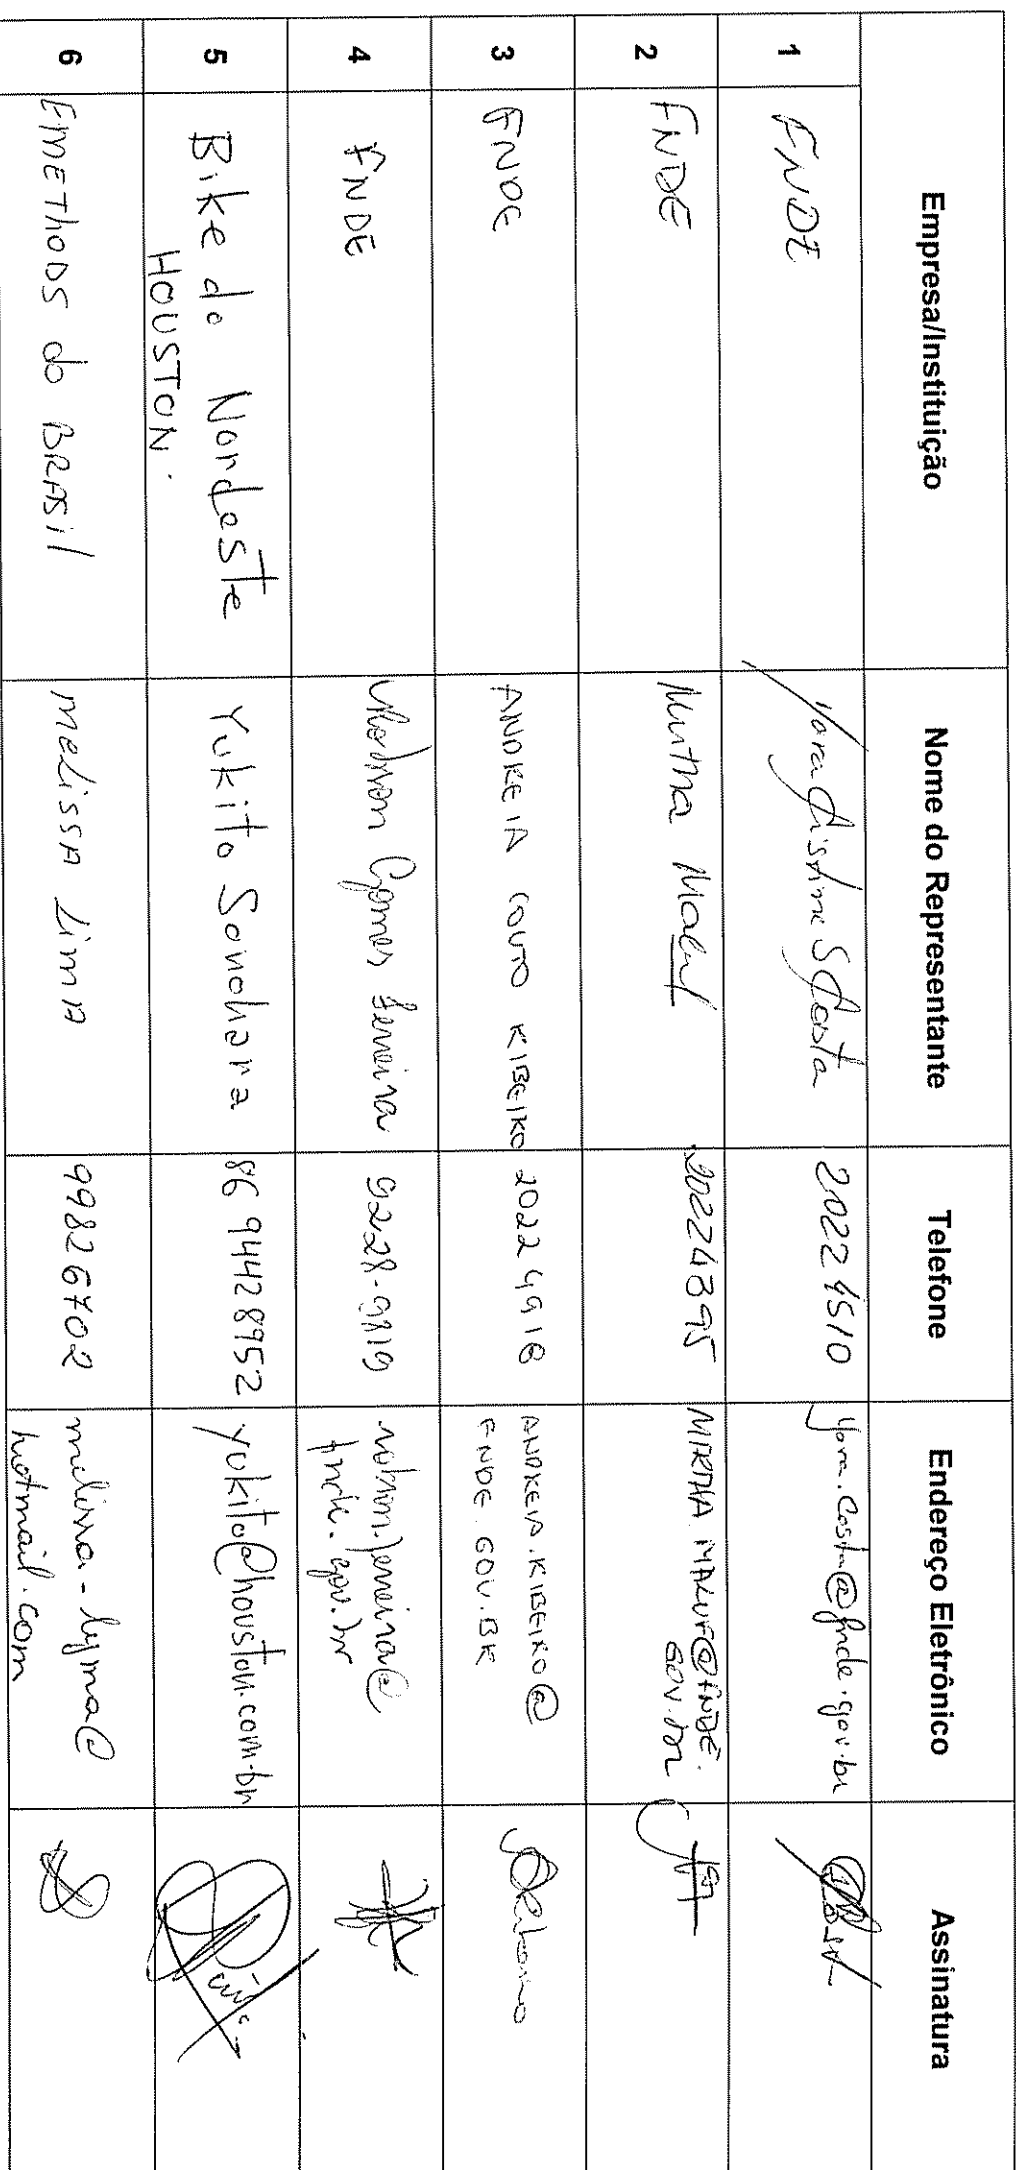 Empresa/Instituição Nome do Representante Telefone Endereço Eletrônico Assinatura
1 FNDE Yara Cristine S Costa 2022 4510 yara.costa@fnde.gov.br
2 FNDE Mirtha Maluf 20224395 MIRTHA.MALUF@FNDE.
GOV.BR
3 FNDE ANDREIA COUTO RIBEIRO 2022 4918 ANDREIA.RIBEIRO@
FNDE.GOV.BR
4 FNDE Robson Gomes Ferreira 9228-9819 robson.ferreira@
fnde.gov.br
5 Bike do Nordeste Yukito Sonohara 86 94428952 yukito@houston.com.br
HOUSTON.
6 EMETHODS do BRASil Melissa Lima 99826702 melissa-lyma@
hotmail.com